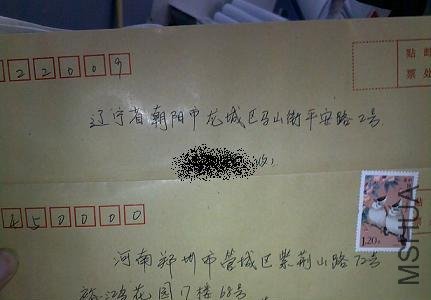 22009
贴邮
票处
辽宁省朝阳市龙城区马山街平安路2号
(收)
450000
1.20元
河南郑州市管城区紫荆山路72号
花园17楼68号
MSHUA